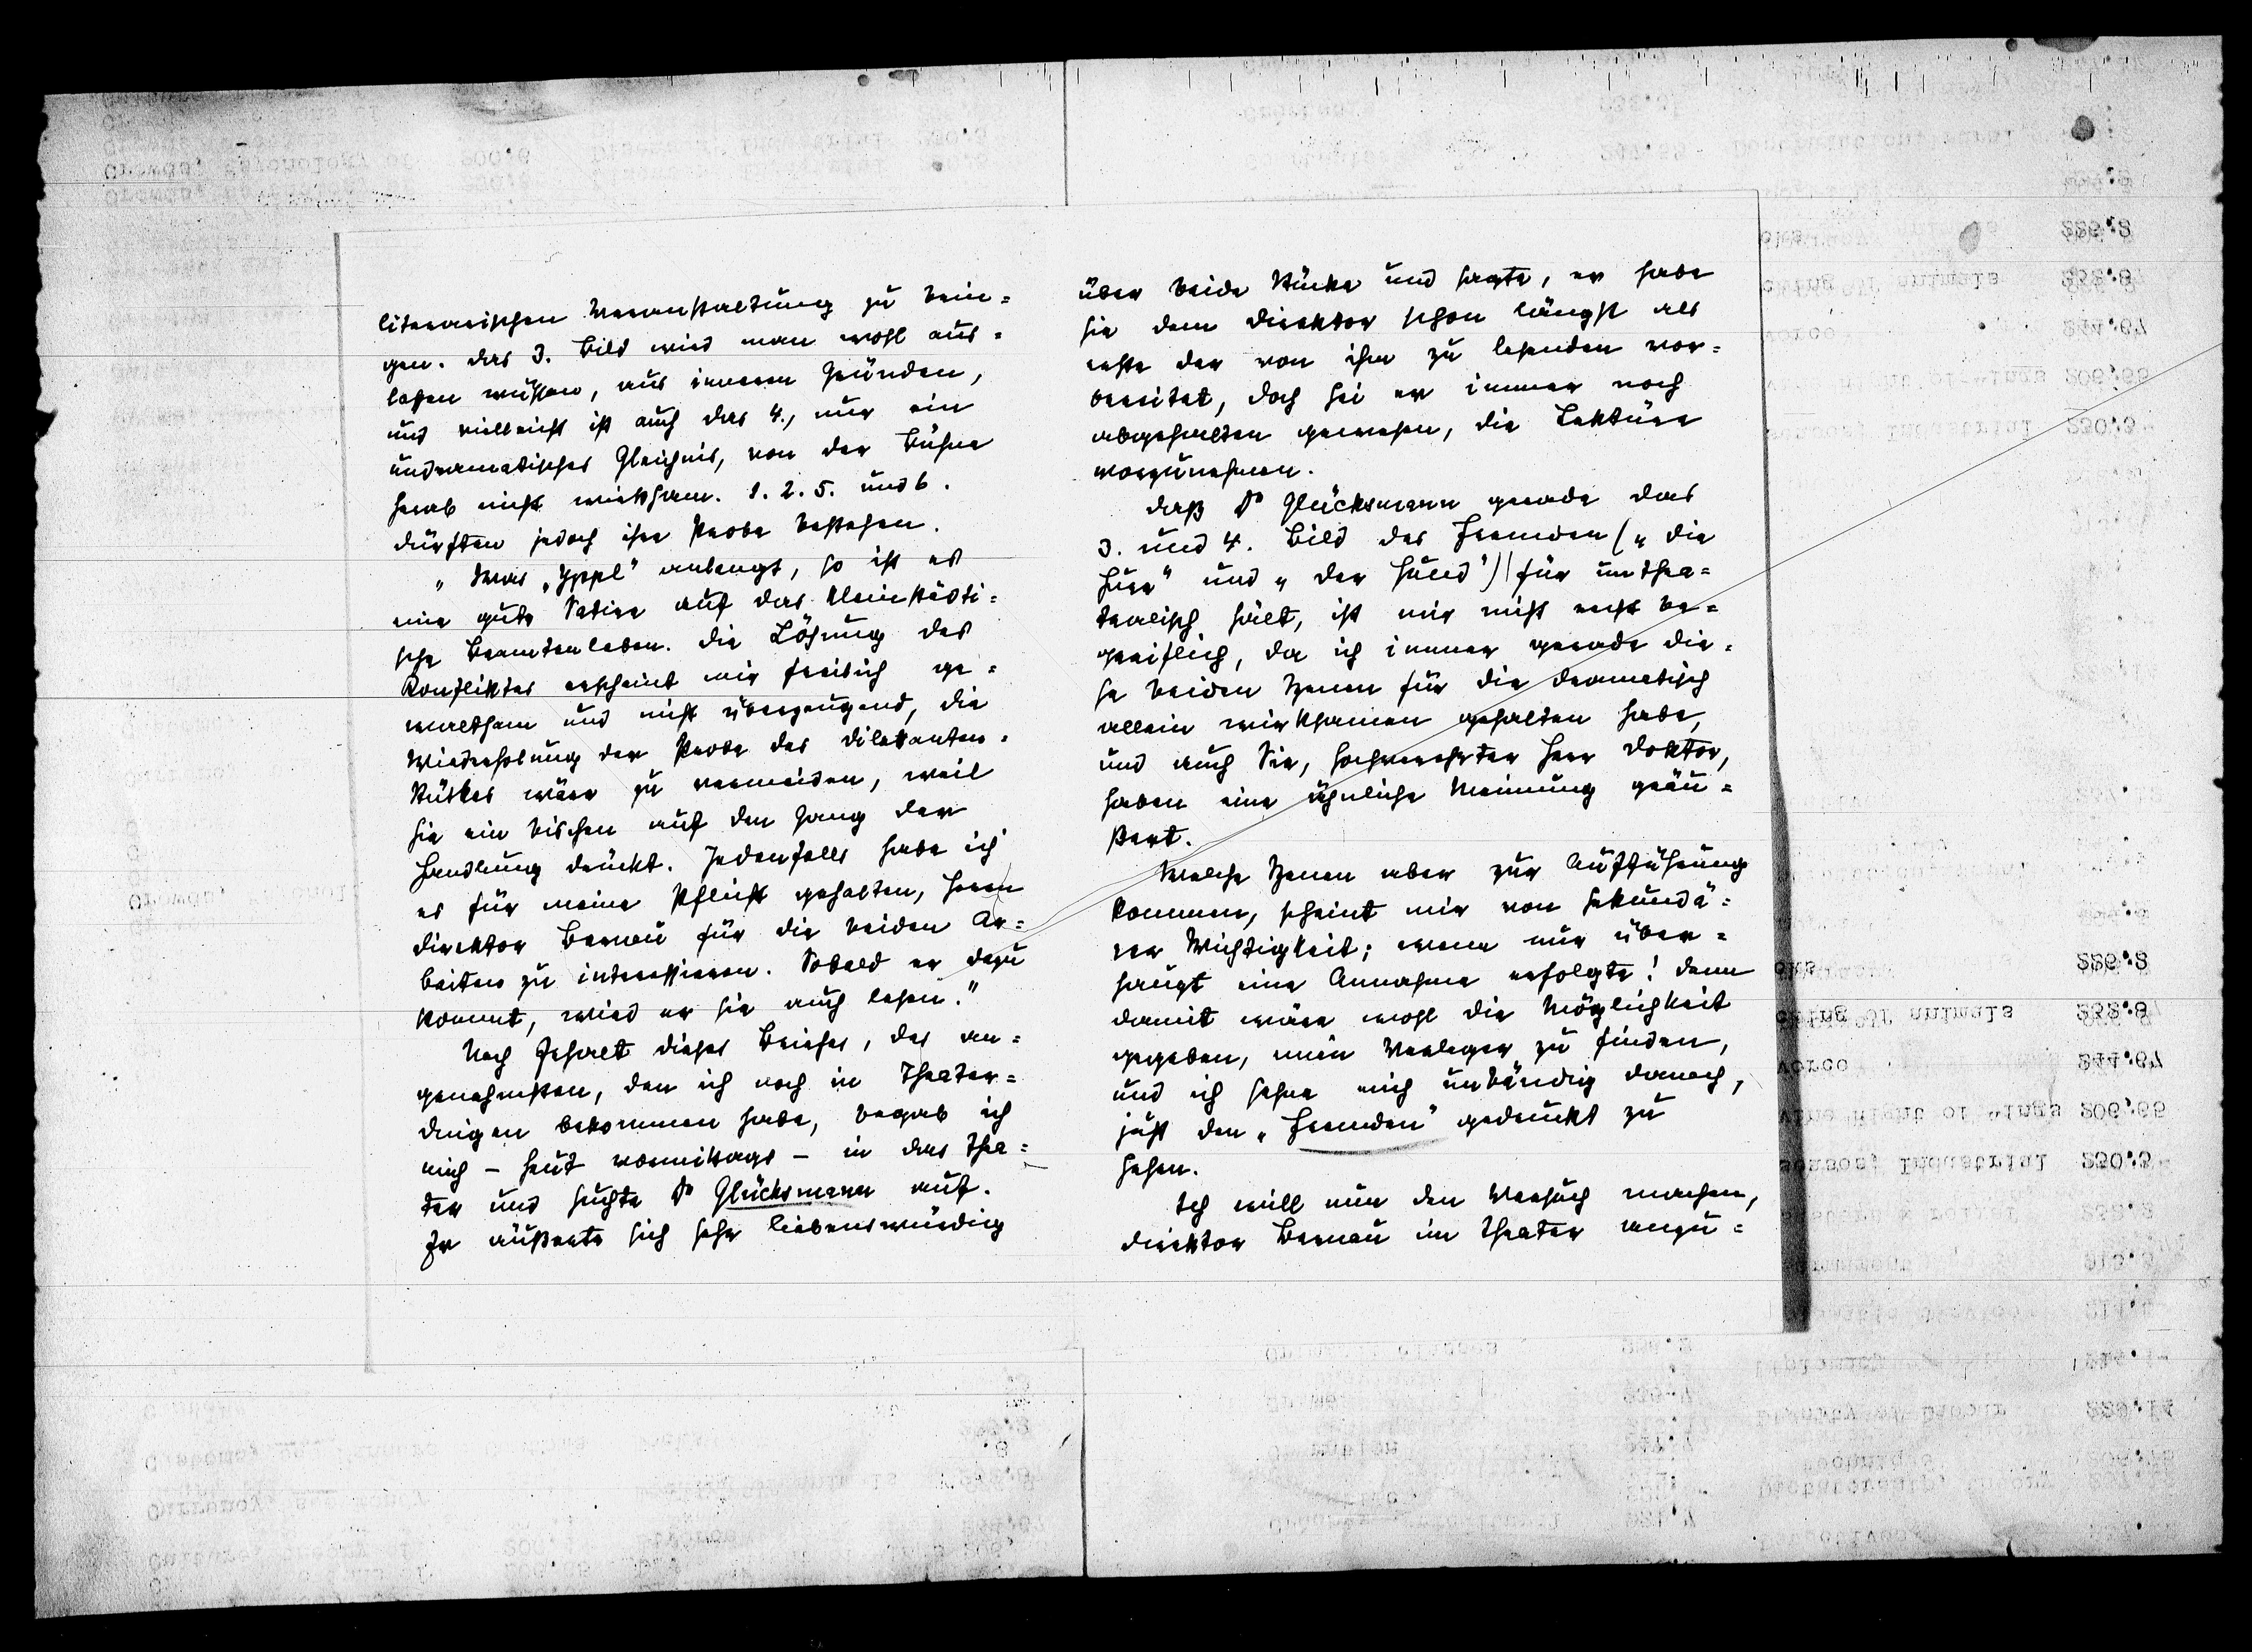 literarischen Veranstaltung zu brin=
gen. Das 3. Bild wird man wohl aus=
lassen müssen, aus inneren Gründen,
und vielleicht ist auch das 4., nur ein
undramatisches Gleichnis, von der Bühne
herab nicht wirksam. 1. 2. 5. und 6.
dürften jedoch ihre Probe bestehen.
„Was „Yppl" anlangt, so ist es
eine gute Satire auf das kleinstädti=
sche Beamtenleben. Die Lösung des
Konfliktes erscheint mir freilich ge=
waltsam und nicht überzeugend, die
Wiederholung der Probe des Dilettanten=
stückes wäre zu vermeiden, weil
sie ein bischen auf den Gang der
Handlung drückt. Jedenfalls habe ich
es für meine Pflicht gehalten, Herrn
Direktor Bernau für die beiden Ar=
beiten zu interessieren. Sobald er dazu
kommt, wird er sie auch lesen."
Nach Erhalt dieses Briefes, des an=
genehmsten, den ich noch in Theater=
dingen bekommen habe, begab ich
mich – heut vormittags – in das Thea=
ter und suchte Dr Glücksmann auf.
Er äußerte sich sehr liebenswürdig
über beide Stücke und sagte, er habe
sie dem Direktor schon längst als
erste der von ihm zu lesenden vor=
bereitet, doch sei er immer noch
abgehalten gewesen, die Lektüre
vorzunehmen.
Daß Dr Glücksmann gerade das
3. und 4. Bild des Fremden („Die
Hure" und „Der Hund") für unthea=
tralisch hält, ist mir nicht recht be=
greiflich, da ich immer gerade die=
se beiden Szenen für die dramatisch
allein wirksamen gehalten habe,
und auch Sie, hochverehrter Herr Doktor,
haben eine ähnliche Meinung geäu=
ßert.
Welche Szenen aber zur Aufführung
kommen, scheint mir von sekundä=
rer Wichtigkeit; wenn nur über=
haupt eine Annahme erfolgte! Denn
damit wäre wohl die Möglichkeit
gegeben, einen Verleger zu finden,
und ich sehne mich unbändig danach,
just den „Fremden" gedruckt zu
sehen.
Ich will nun den Versuch machen,
Direktor Bernau im Theater anzu=